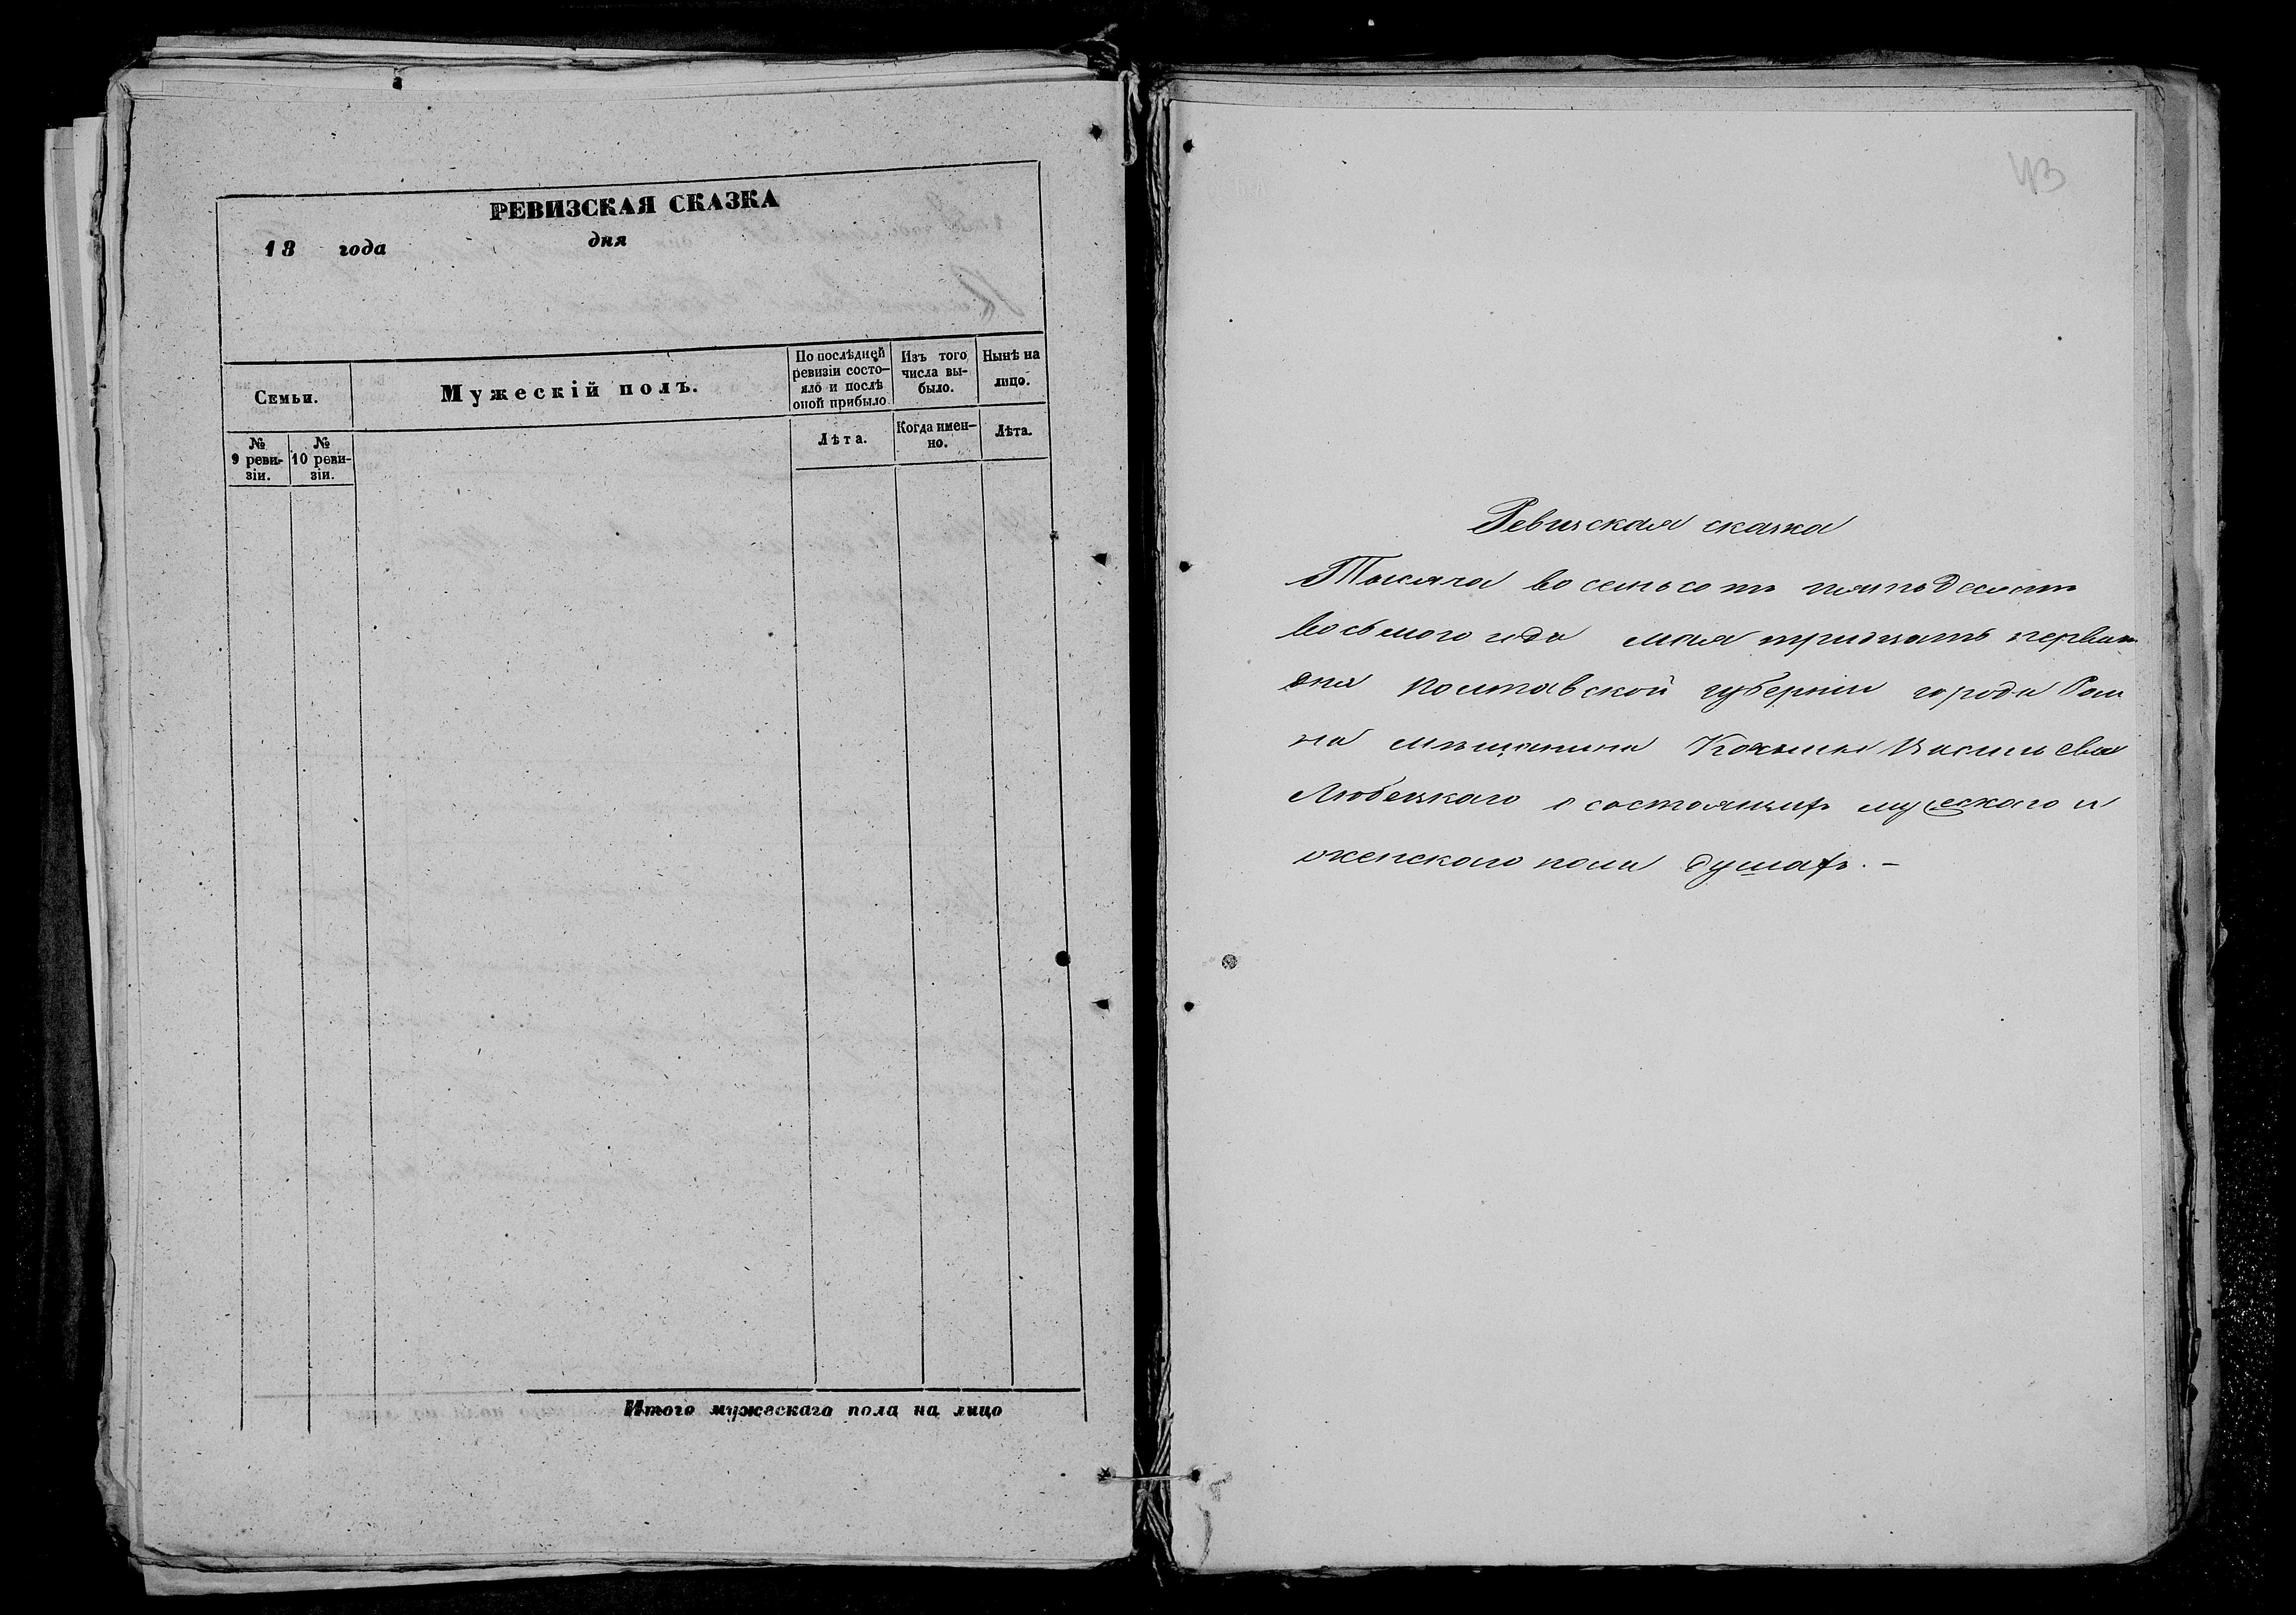 РЕВИЗСКАЯ СКАЗКА
18 года дня
Семьи.
Мужескій полъ.
По послѣдней ревизіи состо-
яло и послѣ оной прибыло
Изъ того числа вы-
было.
Нынѣ на лицо.
№ 9 реви-
зіи.
№ 10 реви-
зіи.
Лѣта.
Когда имен-
но.
Лѣта.
Итого мужескаго пола на лицо
43
Ревизская сказка
Тысяча восемьсотъ пятьдесятъ
восьмого года мая тридцать перваго
дня Полтавской губерніи города Ром
на мѣщанина Козьмы Васильева
Любецкаго о состоящихъ мускаго и
женскаго пола душахъ. –